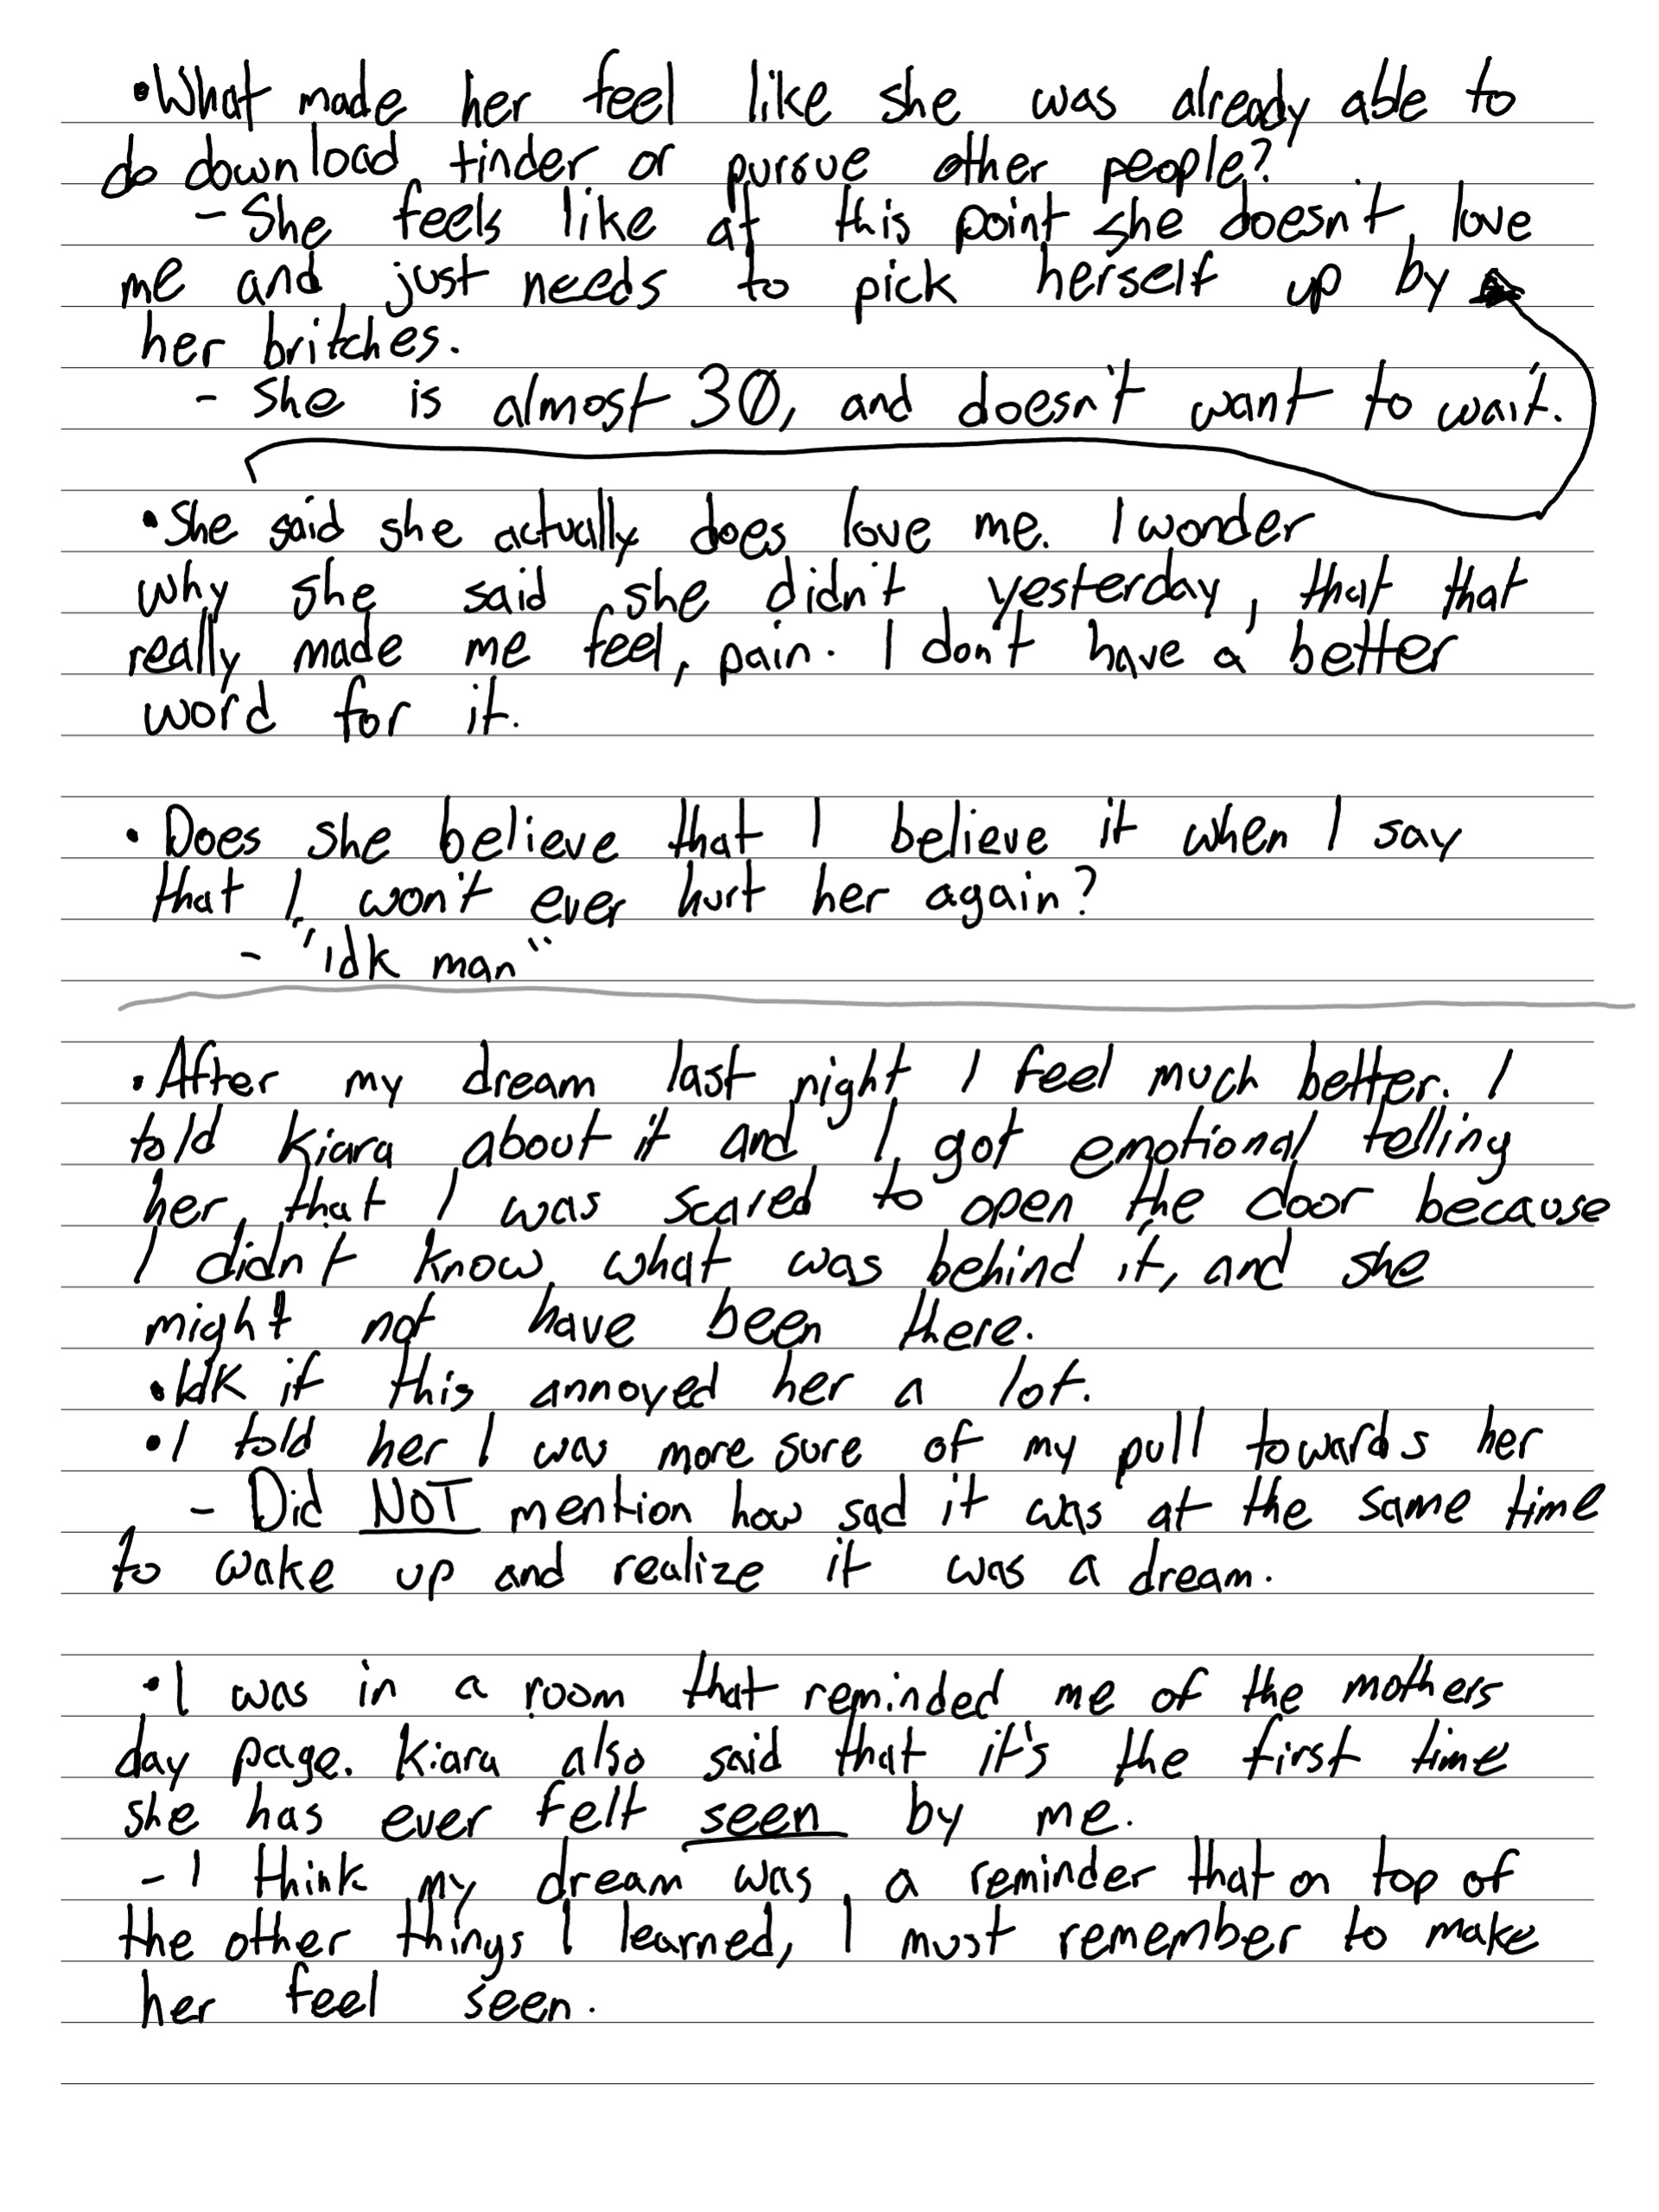 •What made her feel like she was already able to
do download tinder or pursue other people?
- She feels like at this point she doesn't love
me and just needs to pick herself up by
her britches.
- She is almost 30, and doesn't want to wait.
•She said she actually does love me. I wonder
why she said she didn't yesterday, that that
really made me feel, pain. I don't have a better
word for it.
• Does she believe that I believe it when I say
that I won't ever hurt her again?
- "idk man"
•After my dream last night I feel much better. I
told Kiara about it and I got emotional telling
her that I was scared to open the door because
I didn't know what was behind it, and she
might not have been there.
•Idk if this annoyed her a lot.
•I told her I was more sure of my pull towards her
- Did NOT mention how sad it was at the same time
to wake up and realize it was a dream.
•I was in a room that reminded me of the mothers
day page. Kiara also said that it's the first time
she has ever felt seen by me.
- I think my dream was a reminder that on top of
the other things I learned, I must remember to make
her feel seen.